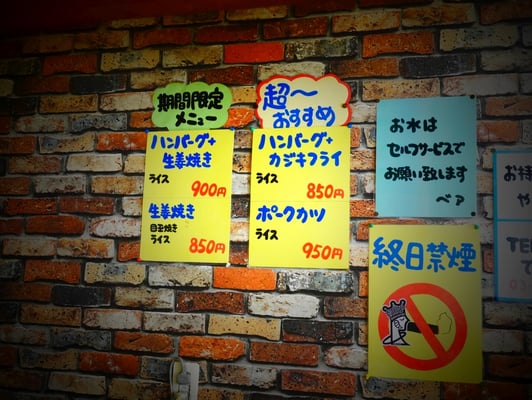 期間限定
メニュー
ハンバーグ+
生姜焼き
ライス
900円
生姜焼き
目玉焼き
ライス
850円
超〜
おすすめ
ハンバーグ+
カジキフライ
ライス
850円
ポークカツ
ライス
950円
お水は
セルフサービスで
お願い致します
ベア
終日禁煙
お持
や
TE
03